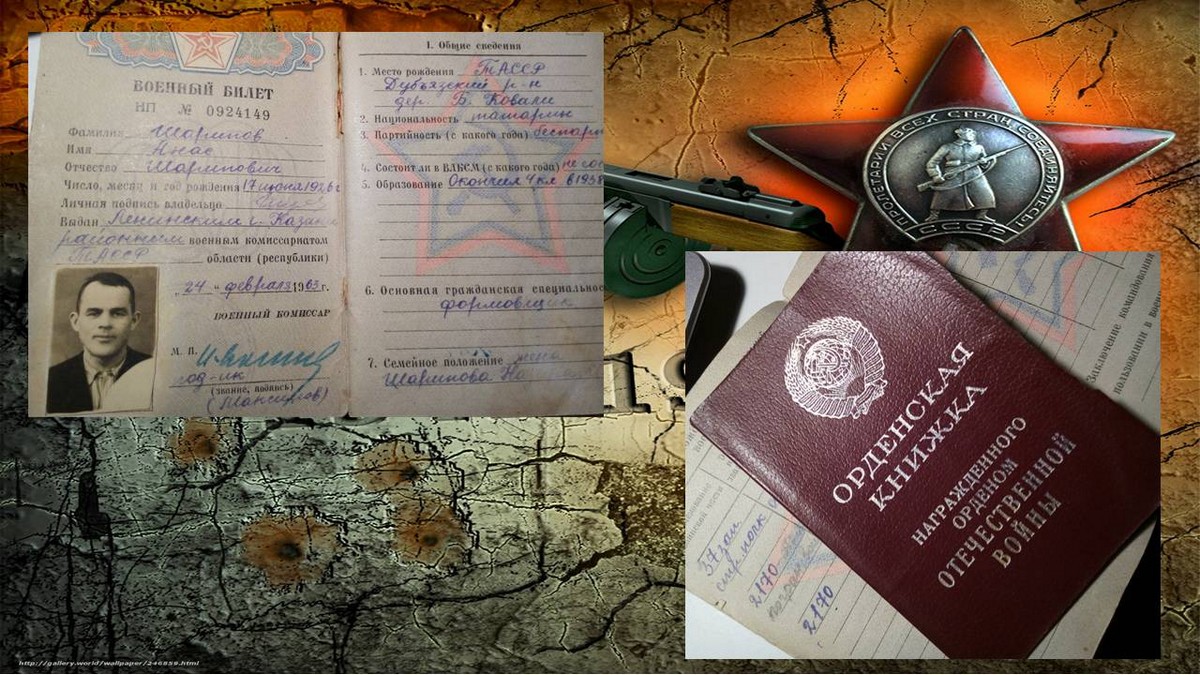 ВОЕННЫЙ БИЛЕТ
НП № 0924149
Фамилия Шарипов
Имя Анас
Отчество Шарипович
Число, месяц и год рождения 17 июня 1926 г
Личная подпись владельца
Выдан Ленинским г. Казани
районным военным комиссариатом
ТАССР области (республики)
„24“ февраля 1963 г.
ВОЕННЫЙ КОМИССАР
М. П.
под-ик
(звание, подпись)
1. Общие сведения
1. Место рождения ТАССР
Дубъязский р-н
дер. Б. Ковали
2. Национальность татарин
3. Партийность (с какого года) беспарт
4. Состоял ли в ВЛКСМ (с какого года) не сос
5. Образование Окончил 4 кл. в 193
6. Основная гражданская специальнос
формовщик
7. Семейное положение жена
Шарипова
ПРОЛЕТАРИИ ВСЕХ СТРАН, СОЕДИНЯЙТЕСЬ!
СССР
ОРДЕНСКАЯ
КНИЖКА
НАГРАЖДЕННОГО
ОРДЕНОМ
ОТЕЧЕСТВЕННОЙ
ВОЙНЫ
Заключение командования
пользовании в воен
37 зап
стр полк
2170
2170
http://gallery.world/wallpaper/246858.html